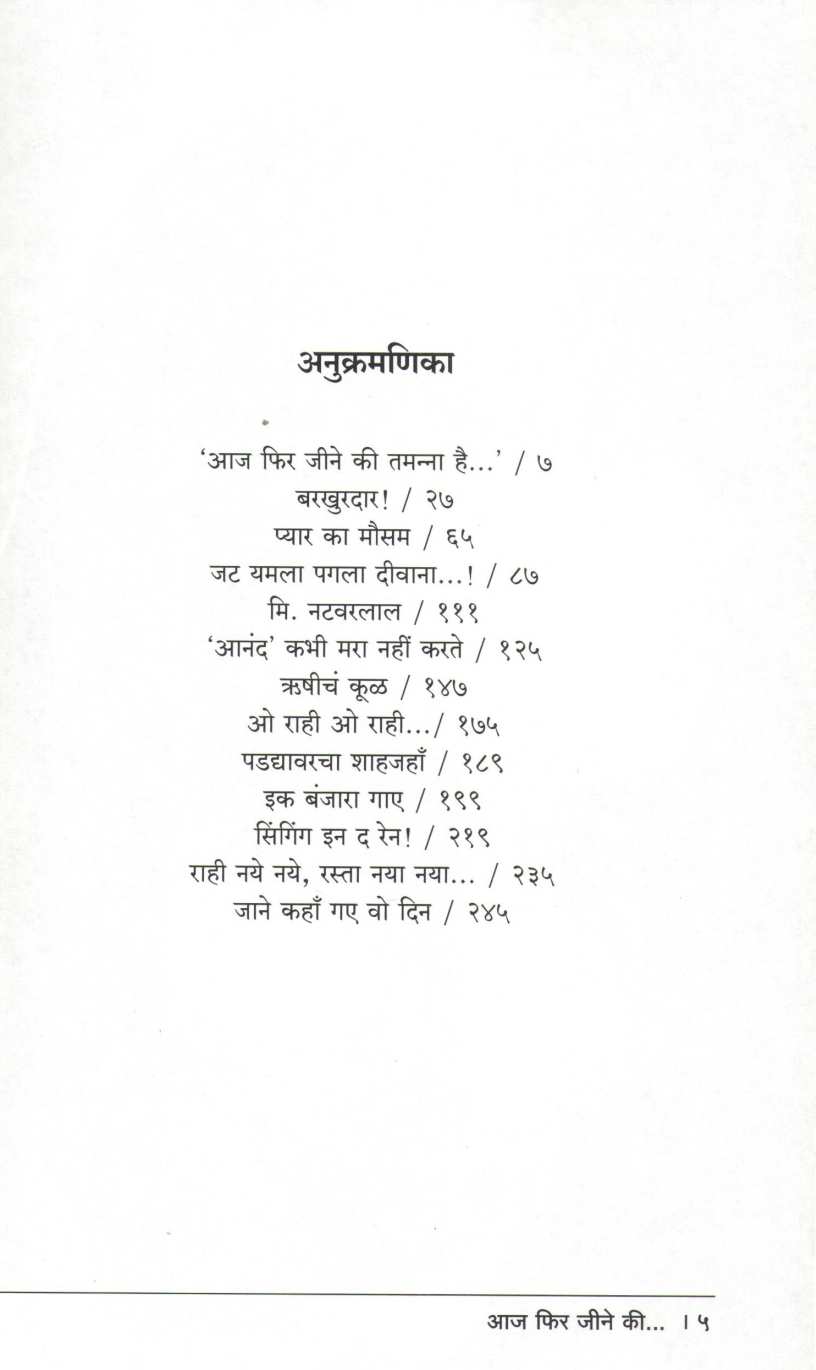 अनुक्रमणिका
‘आज फिर जीने की तमन्ना है...’ / ७
बरखुरदार! / २७
प्यार का मौसम / ६५
जट यमला पगला दीवाना...! / ८७
मि. नटवरलाल / १११
‘आनंद’ कभी मरा नहीं करते / १२५
ऋषीचं कूळ / १४७
ओ राही ओ राही.../ १७५
पडद्यावरचा शाहजहाँ / १८९
इक बंजारा गाए / १९९
सिंगिंग इन द रेन! / २१९
राही नये नये, रस्ता नया नया... / २३५
जाने कहाँ गए वो दिन / २४५
आज फिर जीने की... । ५